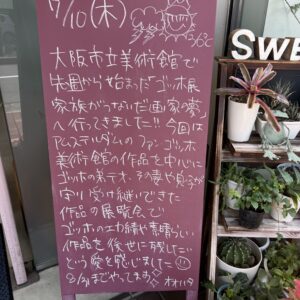 7/10(木)
大阪市立美術館で
先週から始まった「ゴッホ展
家族がつないだ画家の夢」
へ行ってきました!! 今回は
アムステルダムのファン ゴッホ
美術館の作品を中心に
ゴッホの弟テオ、その妻や息子が
守り受け継いできた
作品の展覧会で
ゴッホの工力績や素晴らしい
作品を後世に残したい
という愛を感じました
8/31までやってます オオハタ
SWE